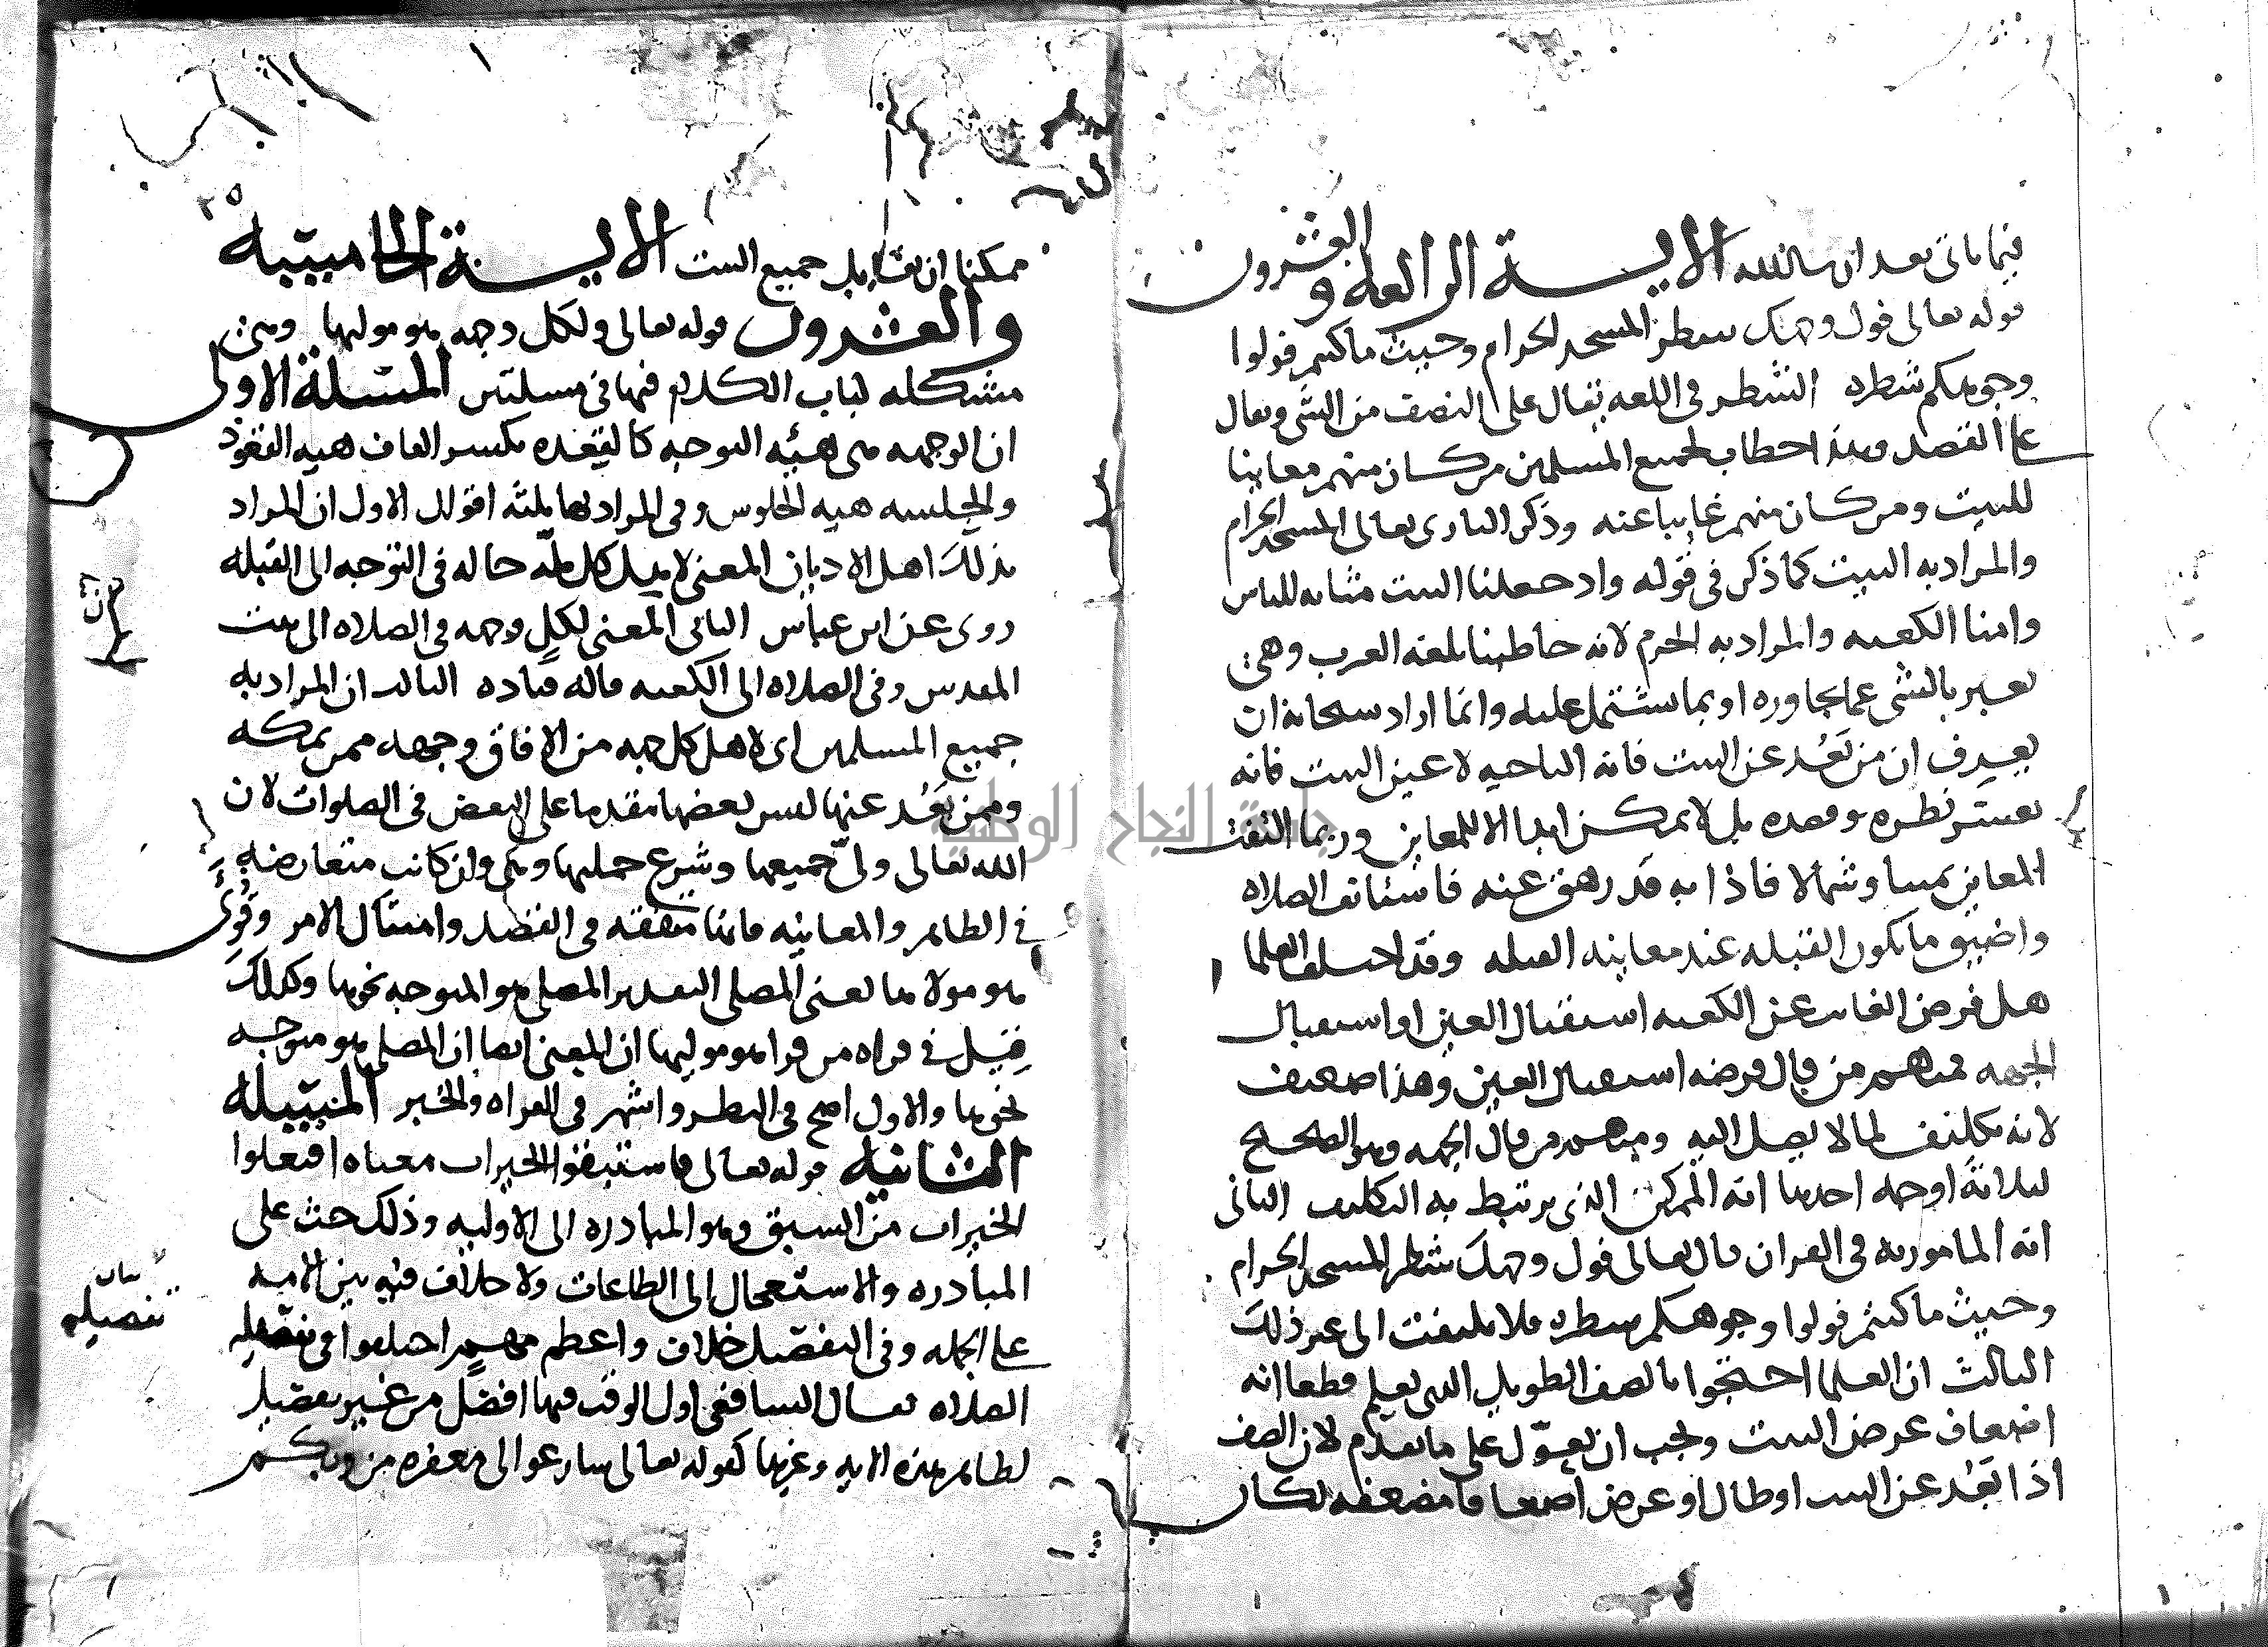 فيما ياتي بعد ان شا الله الآية الرابعة والعشرون
قوله تعالى فول وجهك شطر المسجد الحرام وحيث ما كنتم فولوا
وجوهكم شطره الشطر في اللغة يقال على النصف من الشي ويقال
على القصد وهذا خطاب لجميع المسلمين من كان منهم معاينا
للبيت ومن كان منهم غايبا عنه وذكر الباري تعالى المسجد الحرام
والمراد به البيت كما ذكر في قوله واذ جعلنا البيت مثابة للناس
وامنا الكعبة والمراد به الحرم لانه خاطبنا بلغة العرب وهي
تعبر بالشي عما يجاوره او بما يشتمل عليه وانما اراد سبحانه ان
يعرف ان من بَعُد عن البيت فانه الناحية لا عين البيت فانه
يعسر نظره وقصده بل لا يمكن ابدا الا للمعاين وربما التفت
المعاين يمينا وشمالا فاذا به قد زهق عنه فاستانف الصلاة
واضيق ما تكون القبلة عند معاينة القبلة وقد اختلف العلما
هل فرض الغايب عن الكعبة استقبال العين او استقبال
الجهة فمنهم من قال فرضه استقبال العين وهذا ضعيف
لانه تكليف لما لا يصل اليه ومنهم من قال الجهة وهو الصحيح
لثلاثة اوجه احدها انه الممكن الذي يرتبط به التكليف الثاني
انه المامور به في القران قال تعالى فول وجهك شطر المسجد الحرام
وحيث ما كنتم فولوا وجوهكم شطره فلا يلتفت الى غير ذلك
الثالث ان العلما احتجوا بالصف الطويل الذي يعلم قطعا انه
اضعاف عرض البيت ويجب ان يعوّل على ما تقدم لان الصف
اذا بَعُد عن البيت او طال او عرض اضعافا مضعفة لكان
ممكنا ان يقابل جميع البيت الآية الخامسة
والعشرون قوله تعالى ولكل وجهة هو موليها وهي
مشكلة لباب الكلام فيها في مسلتين المسلة الاولى
ان الوجهة هي هيئة التوجه كالقعدة بكسر القاف هية القعود
والجلسة هية الجلوس وفي المراد بها ثلثة اقوال الاول ان المراد
بذلك اهل الاديان المعنى لاهل كل ملّة حالة في التوجه الى القبلة
روى عن ابن عباس الثاني المعنى لكلٍ وجهة في الصلاة الى بيت
المقدس وفي الصلاة الى الكعبة قاله قتادة الثالث ان المراد به
جميع المسلمين اى لاهل كل جهة من الافاق وجهة ممن بمكة
وممن بَعُد عنها ليس بعضها مقدما على البعض في الصلوات لان
الله تعالى ولّى جميعها وشرع جملتها وهي وان كانت متعارضة
في الظاهر والمعاينة فانها متفقة في القصد وامتثال الامر وقُرئ
هو مولاها يعني المصلى التقدير المصلى هو المتوجه نحوها وكذلك
قيل في قراة من قرا هو موليها ان المعنى ايضا ان المصلى هو متوجه
نحوها والاول اصح في النظر واشهر في القراة والخبر المسيلة
الثانية قوله تعالى فاستبقوا الخيرات معناه افعلوا
الخيرات من السبق وهو المبادرة الى الاولية وذلك حث على
المبادرة والاستعجال الى الطاعات ولا خلاف فيه بين الامة
على الجملة وفي التفصيل خلاف واعظم مهمٍ اختلفوا في تفصيله
الصلاة فقال الشافعي اول الوقت فيها افضل من غير تفصيل
لظاهر هذه الاية وغيرها كقوله تعالى سارعوا الى مغفرة من ربكم
بيان
تفصيله